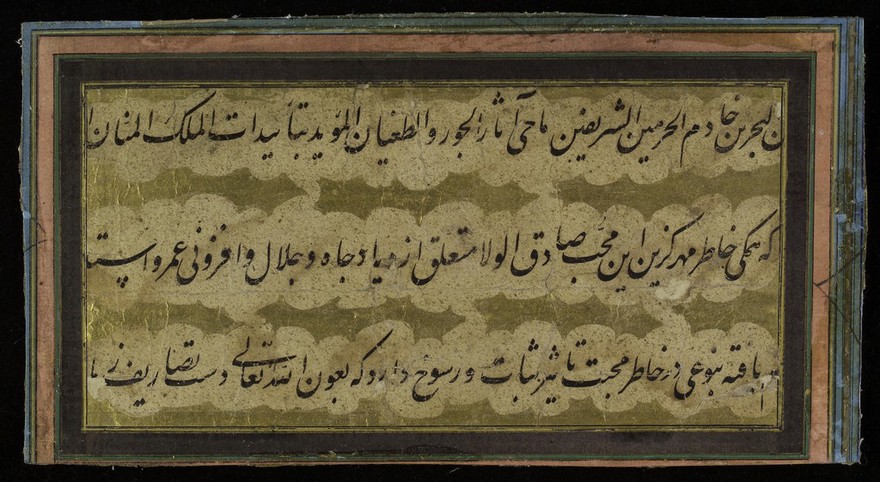 البحرین خادم الحرمین الشریفین ماحی آثار الجور و الطغیان المؤید بتأییدات الملک المنان
که همگی خاطر مهر گزین این محب صادق الولا متعلق ازدیاد جاه و جلال و افزونی عمر و
یافته بنوعی در خاطر محبت تاثیر ثبات و رسوخ دارد که بعون الله تعالی دست تصاریف